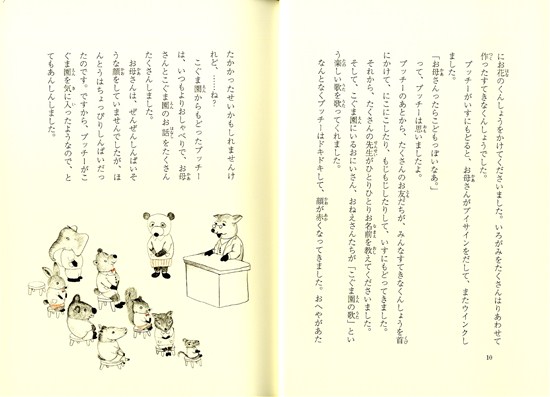 にお花のくんしょうをかけてくださいました。いろがみをたくさんはりあわせて
作ったすてきなくんしょうでした。
プッチーがいすにもどると、お母さんがブイサインをだして、またウインクし
ました。
「お母さんったらこどもっぽいなあ。」
って、プッチーは思いましたよ。
プッチーのあとから、たくさんのお友だちが、みんなすてきなくんしょうを首
にかけて、にこにこしたり、もじもじしたりして、いすにもどってきました。
それから、たくさんの先生がひとりひとりお名前を教えてくださいました。
そして、こぐま園にいるおにいさん、おねえさんたちが「こぐま園の歌」とい
う楽しい歌を歌ってくれました。
なんとなくプッチーはドキドキして、顔が赤くなってきました。おへやがあた
10
たかかったせいかもしれませんけ
れど、……ね?
こぐま園からもどったプッチー
は、いつもよりおしゃべりで、お母
さんとこぐま園のお話をたくさん
たくさんしました。
お母さんは、ぜんぜんしんぱいそ
うな顔をしていませんでしたが、ほ
んとうはちょっぴりしんぱいだっ
たのです。ですから、プッチーがこ
ぐま園を気に入ったようなので、と
てもあんしんしました。